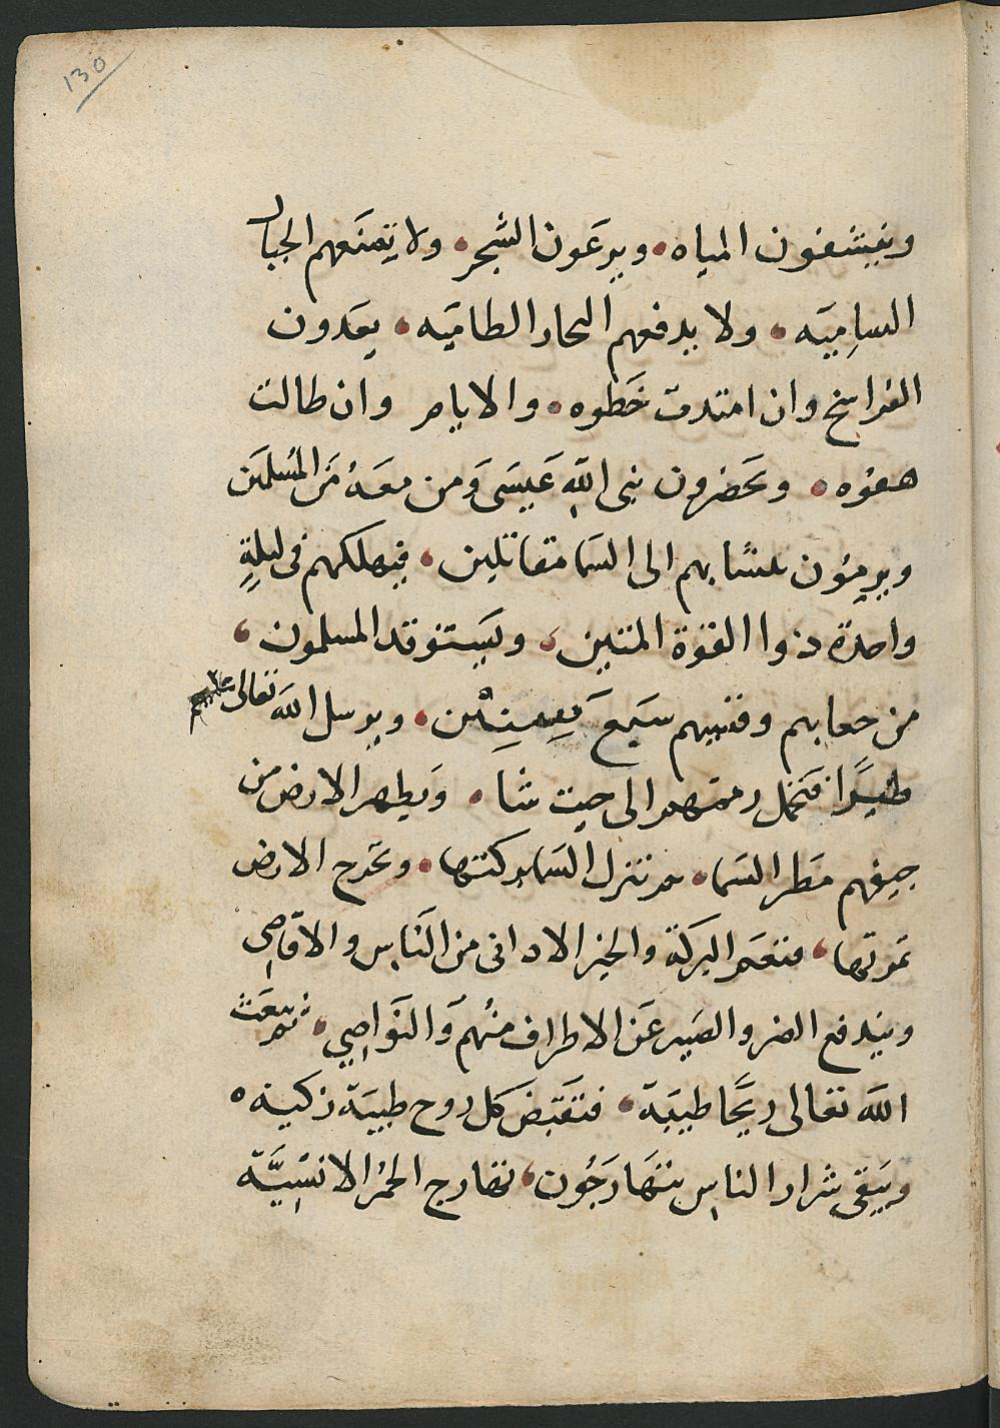 130
وينشفون المياه • ويرعون الشجر • ولا يمنعهم الجبال
الساميه • ولا يدفعهم البحار الطاميه • يعدون
الفراسخ وان امتدت خطوه • والايام وان طالت
هفوه • ويحضرون نبى الله عيسى ومن معه من المسلمين
ويرمون بنشابهم الى السما مقاتلين • فيهلكهم فى ليلة
واحدة ذوا القوة المتين • ويستوقد المسلمون •
من جعابهم وقسيهم سبع سنين • ويرسل الله تعالى عليهم
طيرا فتحمل رممهم الى حيث شا • ويطهر الارض من
جيفهم مطر السما • ثم تنزل السما بركتها • وتخرج الارض
ثمرتها • فتعم البركة والخير الادانى من الناس والاقاصى
ويندفع الضر والضير عن الاطراف منهم والنواصي • ثم يبعث
الله تعالى ريحا طيبة • فتقبض كل روح طيبة زكيه ه
ويبقى شرار الناس يتهارجون • تهارج الحمر الانسيّة